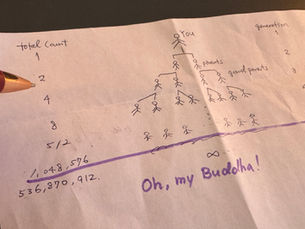 total Count
You
generation
1
1
parents
2
2
grand parents
4
8
512
1,048,576
536,870,912.
∞
Oh, my Buddha!